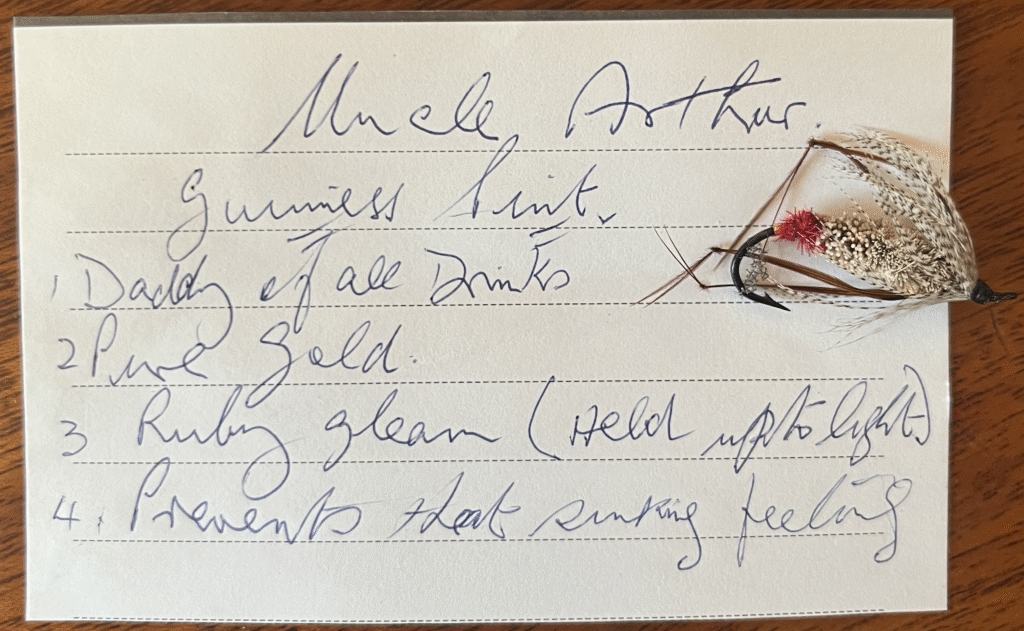 Uncle Arthur.
Guinness Pint.
1 Daddy of all Drinks
2 Pure Gold.
3 Ruby gleam (Held up to light)
4. Prevents that sinking feeling